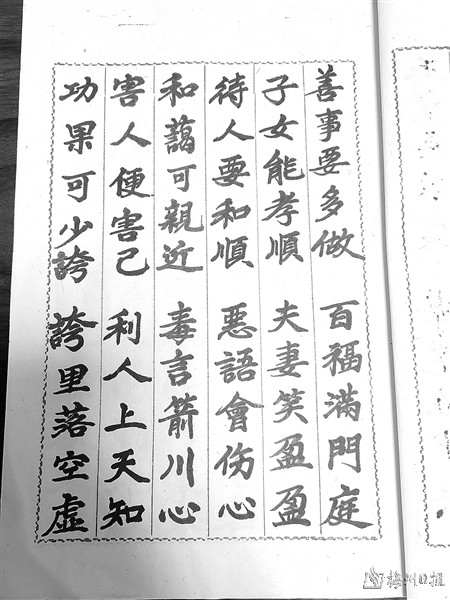 善事要多做 百福滿門庭
子女能孝順 夫妻笑盈盈
待人要和順 惡語會伤心
和藹可親近 毒言箭川心
害人便害己 利人上天知
功果可少誇 誇里落空虛
梅州日报